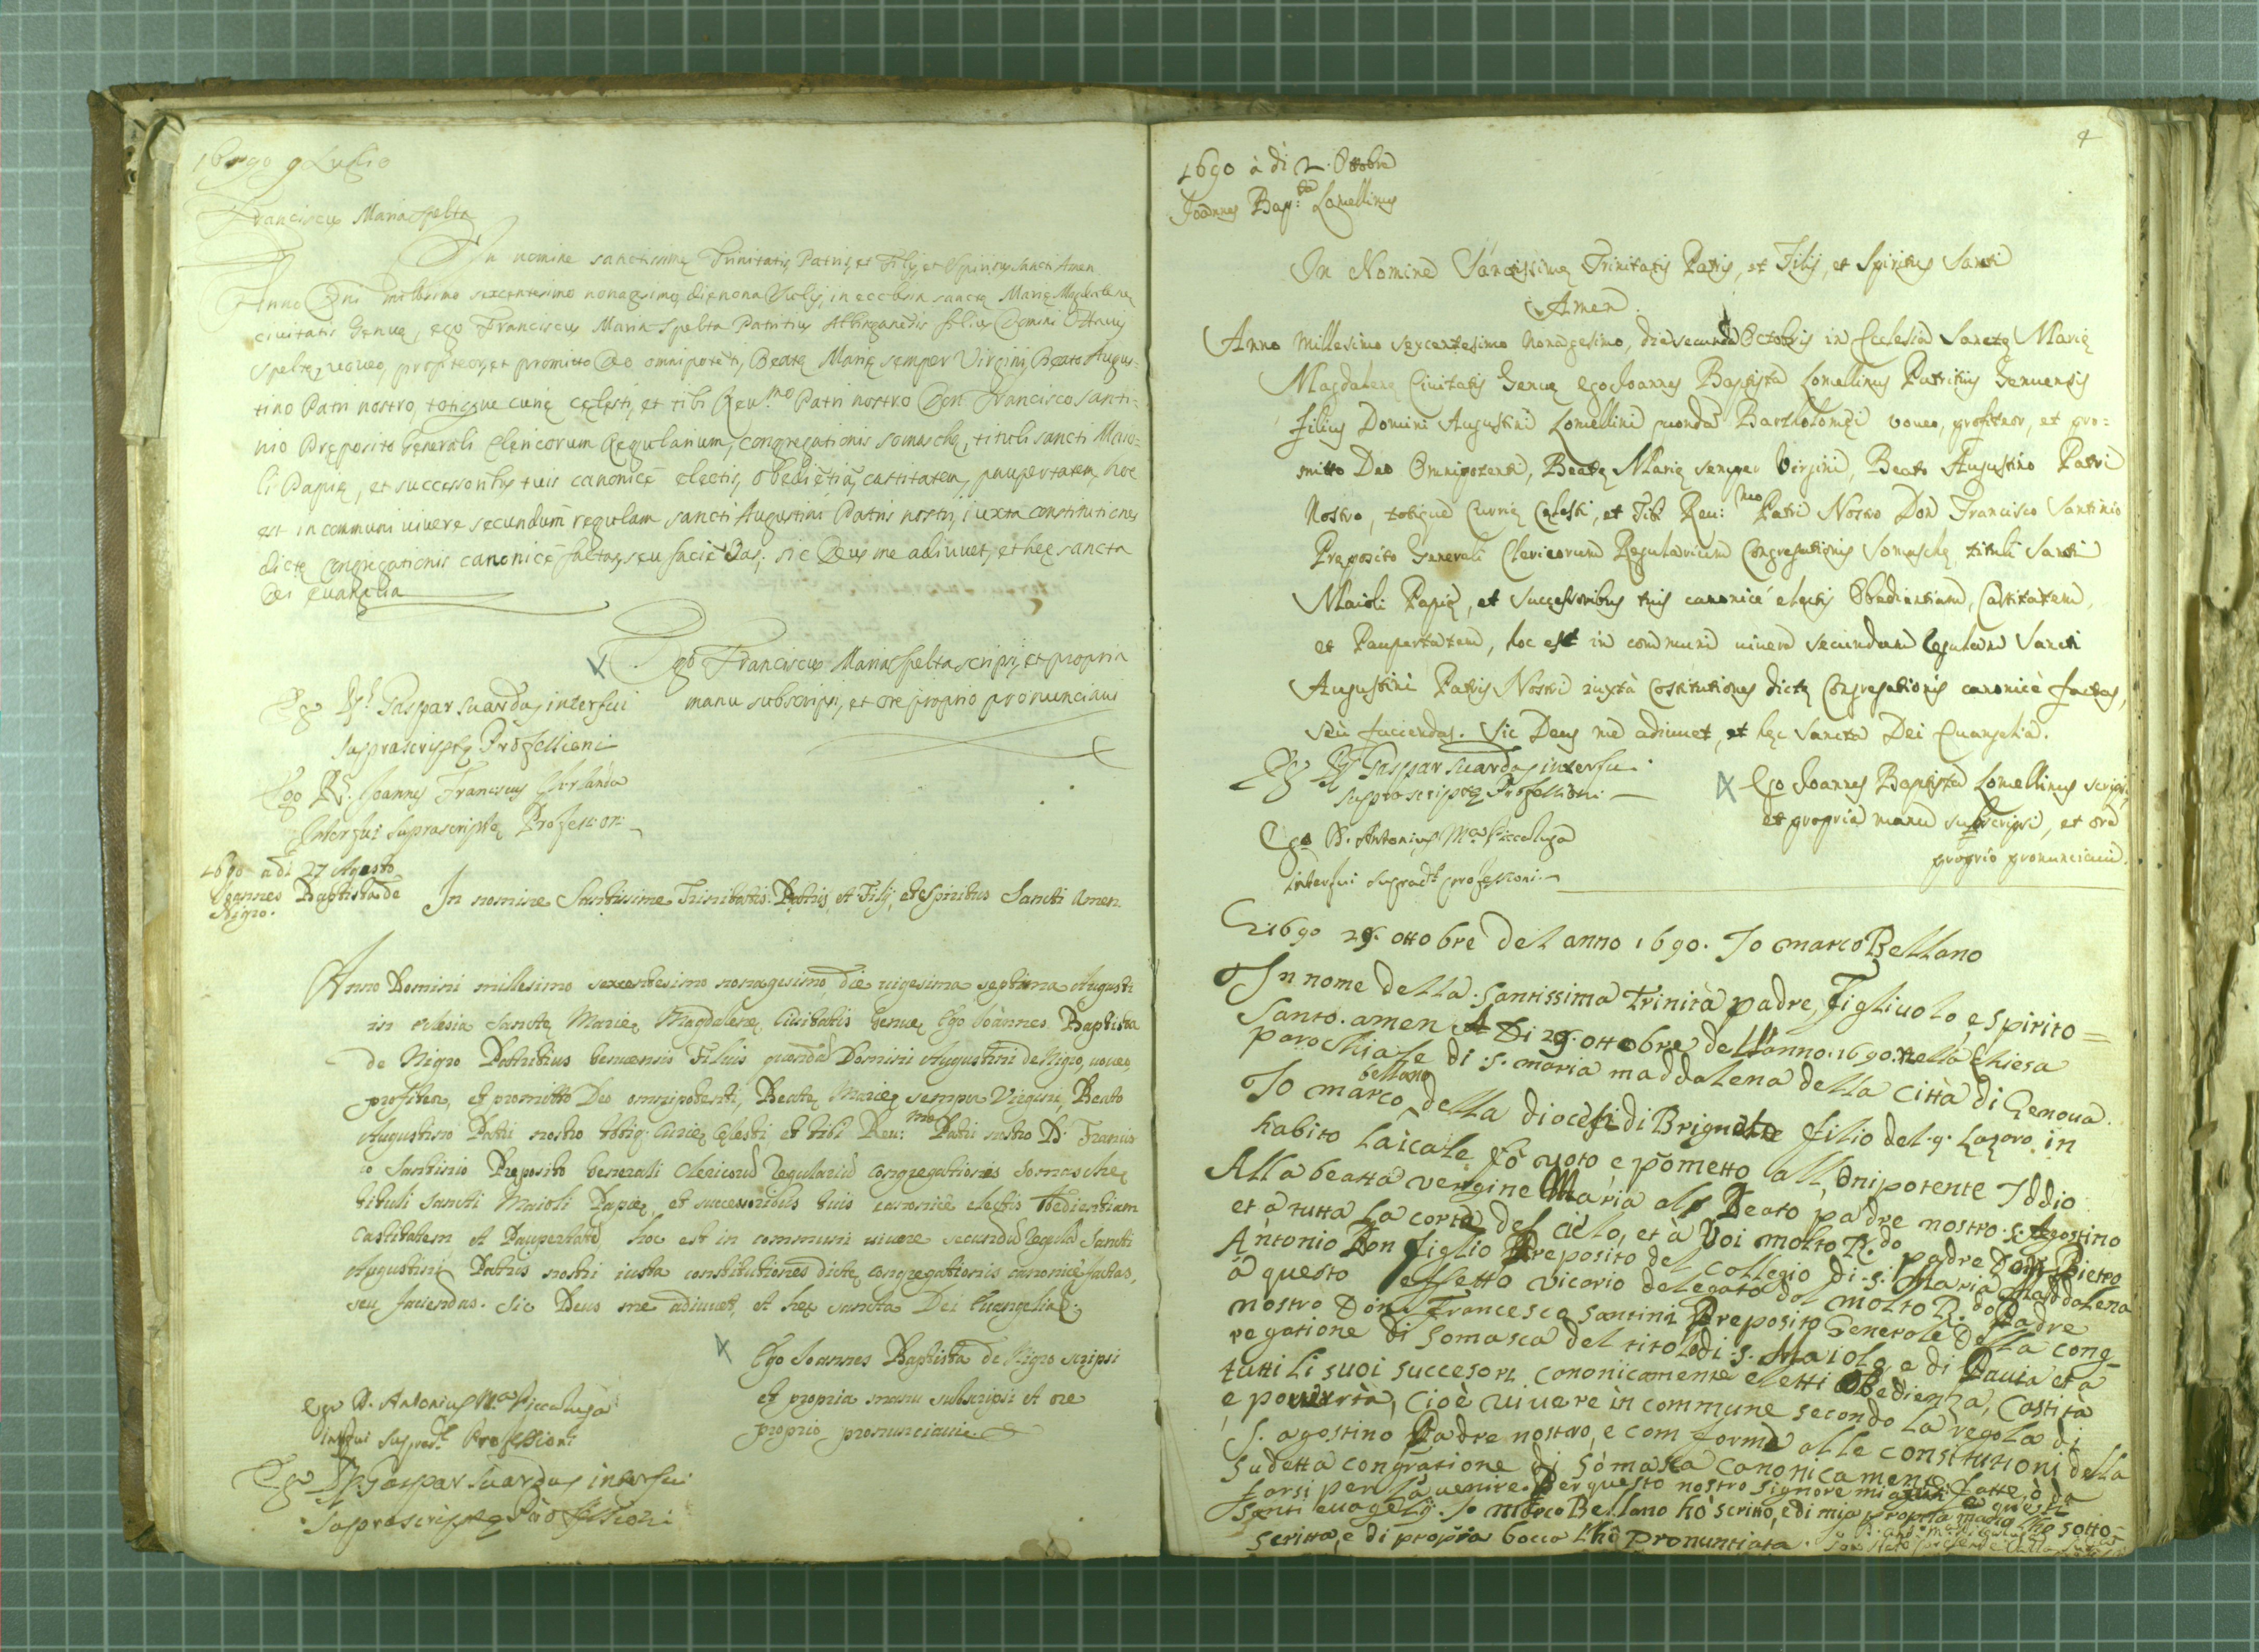 1690 9 Luglio
Franciscus Maria Spelta
In nomine sanctissimę Trinitatis, Patris, et Filij, et Spiritus Sancti Amen
Anno Dni millesimo sexcentesimo nonagesimo, die nona Iulij, in ecclesia sanctę Marię Magdalenę
civitatis Genuę, ego Franciscus Maria Spelta Patritius Albinganensis filius Domini Ottavij
Speltę, voveo, profiteor, et promitto Deo omnipotēti, Beatę Marię semper Virgini, Beato Augus-
tino Patri nostro, totique curię cęlesti, et tibi Reu.mo Patri nostro Don Francisco Santi=
nio Pręposito Generali Clericorum Regularium, congregationis somaschę, tituli sancti Maio=
li Papię, et successoribus tuis canonicè electis, obediētiā, castitatem, paupertatem, hoc
est in communi uiuere secundum regulam sancti Augustini Patris nostri, iuxta constitutiones
dictę congregationis canonicè factas, seu faciēdas; sic Deus me adiuuet, et hęc sancta
Dei Euangelia
Ego Franciscus Maria Spelta scripsi, et propria
manu subscripsi, et ore proprio pronunciaui
Ego Gaspar Suardus interfui
suprascriptę Professioni
Ego Joannes Franciscus
Interfui suprascriptę Profession
1690 a di 27 Agosto
Joannes Baptista de
Nigro.
In nomine Santissime Trinitatis Patris, et Filij, et Spiritus Sancti Amen
Anno Domini millesimo sexcentesimo nonagesimo die uigesima septima Augusti
in eclesia Sanctę Marię Magdalenę Ciuitatis Genuę Ego Joànnes Baptista
de Nigro Patritius Genuensis Filius quondā Domini Augustini de Nigro, uoueo,
profiteor, et promitto Deo omnipotenti, Beatę Marię semper Virgini, Beato
Augustino Patri nostro totiq. Curię Cęlesti, et tibi Reu:mo Patri nostro D. Francis
co Santinio Pręposito Generali Clericorū Regulariū Congregationis Somaschę
tituli Sancti Maioli Papię, et successoribus tuis canonicè electis obedientiam
Castitatem et Paupertatē, hoc est in communi uiuere secundū Regulā Sancti
Augustini Patris nostri iusta constitutiones dictę Congregationis canonicè factas,
seu faciendas. Sic Deus me adiuuet, et hęc sancta Dei Euangelia.
Ego Joannes Baptista de Nigro scripsi
et propria manu subscripsi et ore
proprio pronunciaui
Ego D. Antonius M.a Piccaluga
interfui suprad.ę Professioni
Ego Gaspar Suardus interfui
suprascriptę Professioni
4
1690 à dì 2. Ottobre
Joannes Bap:ta Lomellinus
In Nomine Sanctissimę Trinitatis Patris, et Filij, et Spiritus Santi
Amen.
Anno Millesimo Sexcentesimo Nonagesimo, die secunda Octobris in Ecclesia Sanctę Marię
Magdalenę Ciuitatis Genuę ego Joannes Baptista Lomellinus Patritius Genuensis
filius Domini Augustini Lomellini quondā Bartholomęi voueo, profiteor, et pro=
mitto Deo Omnipotenti, Beatę Marię semper Virgini, Beato Augustino Patri
Nostro, totique Curię Cęlesti, et Tibi Reu:mo Patri Nostro Don Francisco Santinio
Pręposito Generali Clericorum Regularium Congregationis Somaschę tituli Santi
Maioli Papię, et Successoribus tuis canonicè electis Obedientiam, Castitatem,
et Paupertatem, hoc est in communi uiuere secundum Regulam Sancti
Augustini Patris Nostri iuxtà Costitutiones dictę Congregationis canonicè factas,
seù faciendas. Sic Deus me adiuuet, et hęc Sancta Dei Euangelia.
Ego Gaspar Suardus interfui
suprascriptę Professioni
Ego Joannes Baptista Lomellinus scripsi,
et propria manu subscripsi, et ore
proprio pronunciaui.
Ego D. Antonius M.a Piccaluga
interfui suprad.ę professioni
1690 29. ottobre del anno 1690. Io marco Bellano
In nome della santissima Trinità padre, Figliuolo, e spirito=
santo. amen A Di 29. ottobre dell'anno. 1690. nella chiesa
parochiale di .S. maria maddalena della città di Genoua.
Io marco bellano della diocesi di Brignole filio del .q. Lazaro in
habito laicale fò voto e pometto all'onipotente Iddio
Alla beatta vergine Maria als Beato padre nostro .s. Agostino
et à tutta la corte del cielo, et à Voi molto R.do padre Don Pietro
Antonio Don figlio Preposito del collegio di .s. Maria Maddalena
à questo effetto vicario delegato dal molto R.do Padre
nostro Don Francesco Santini Preposito Generale Della cong
regatione di somasca del titolo di .s. Maiolo, e di Pauia et à
tutti li suoi succesori canonicamente eletti OBedienza, Castità
e pouertà, cioè viuere in commune secondo la regola di
S. agostino Padre nostro, e com forme alle constitutioni della
sudetta congratione di somasca canonicamente. fatte, ò dà
farsi per là uenire. Per questo nostro signore mi aiuti e questi
santi euagelij. Io marco Bellano hò scritto, e di mia propria mano l'hò sotto-
scritta, e di propria bocca l'hò pronuntiata.